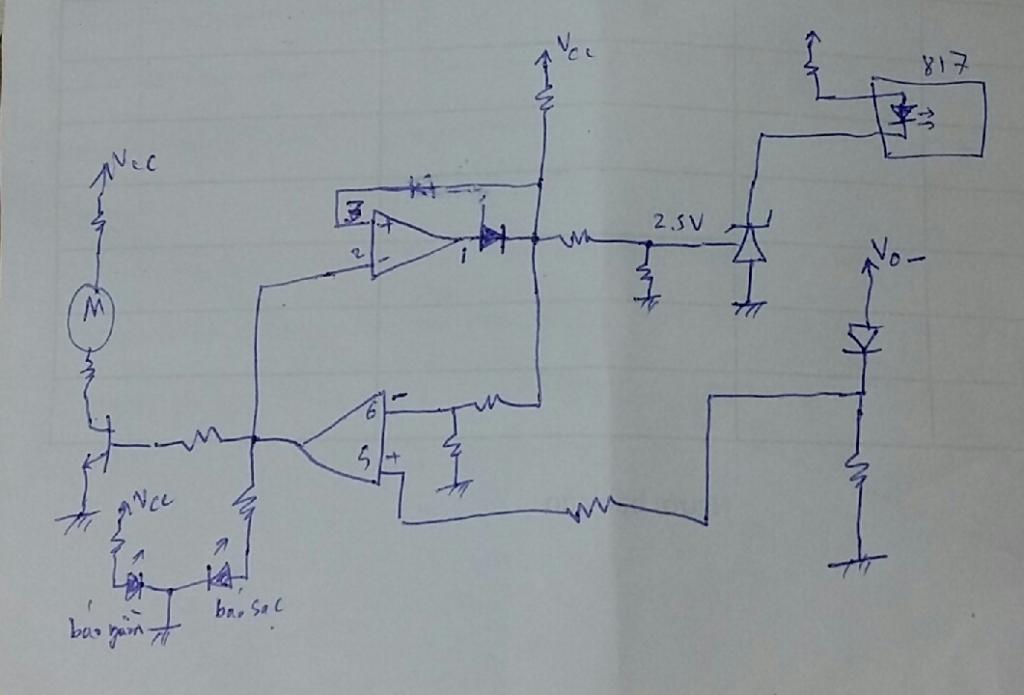 817
Vcc
Vcc
3
+
2.5V
2
-
1
Vo-
M
6
-
5
+
Vcc
báo nguồn
báo sạc